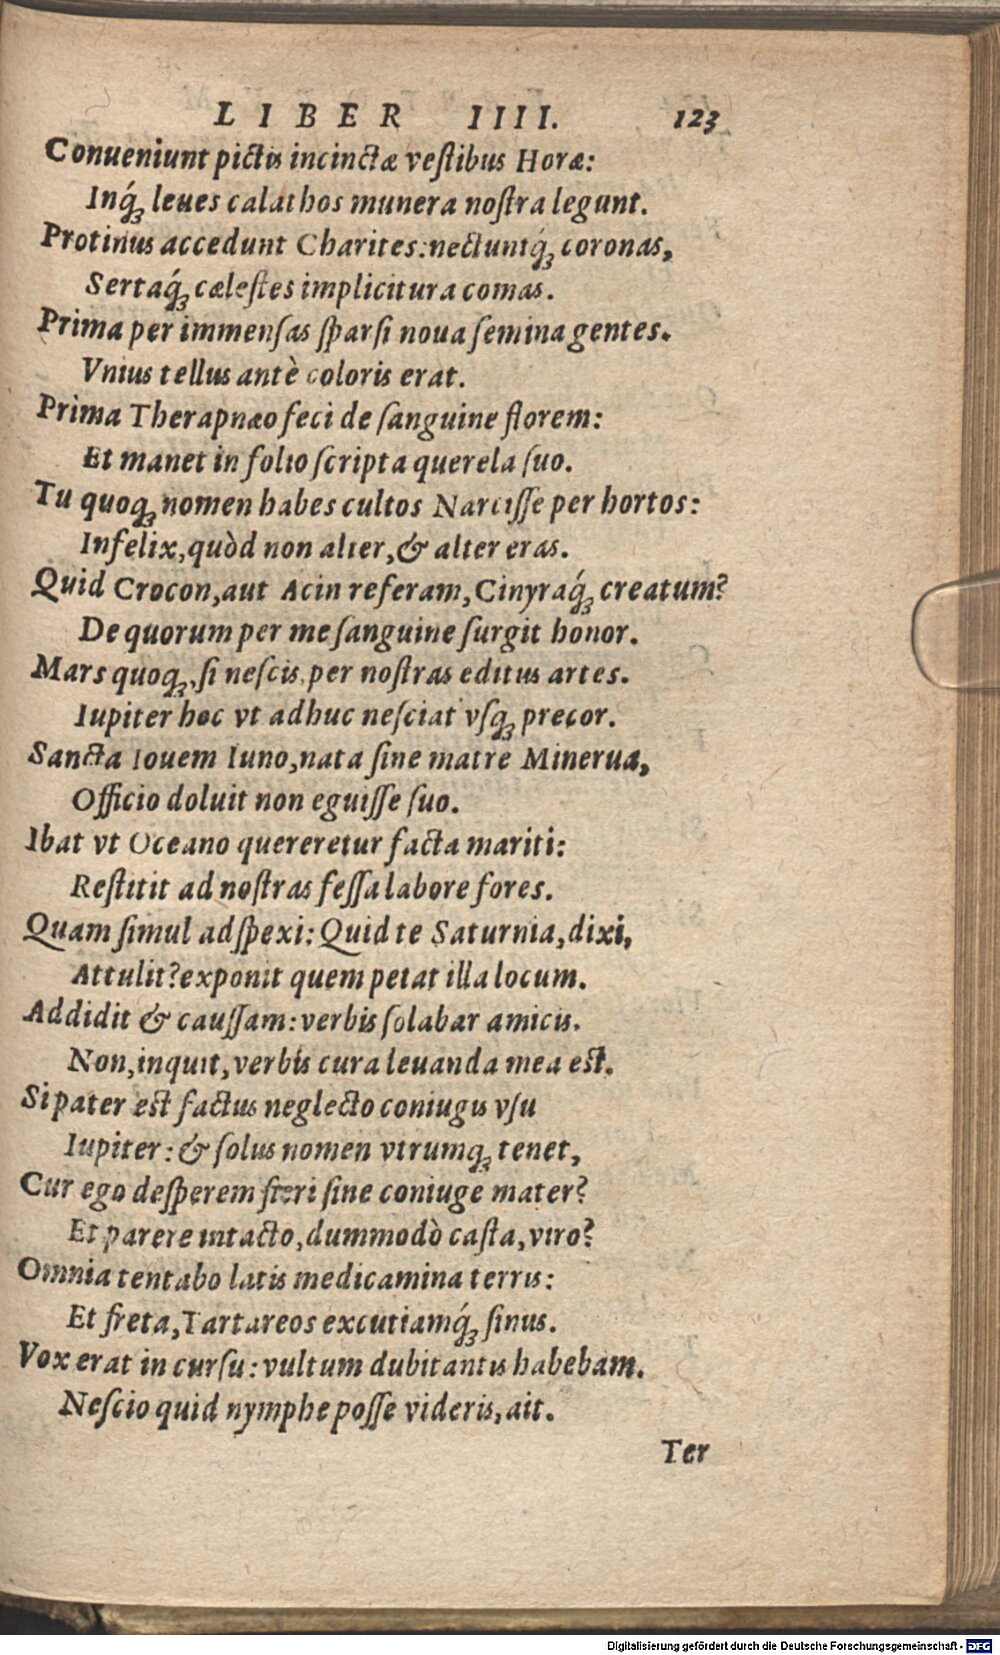 LIBER IIII. 123
Conueniunt pictis incinctæ veſtibus Horæ:
Inq́ꝫ leues calathos munera noſtra legunt.
Protinus accedunt Charites: nectuntq́ꝫ coronas,
Sertaq́ꝫ cæleſtes implicitura comas.
Prima per immenſas ſparſi noua ſemina gentes.
Vnius tellus antè coloris erat.
Prima Therapnæo feci de ſanguine florem:
Et manet in folio ſcripta querela ſuo.
Tu quoqꝫ nomen habes cultos Narciſſe per hortos:
Infelix, quòd non alter, & alter eras.
Quid Crocon, aut Acin referam, Cinyraq́ꝫ creatum?
De quorum per me ſanguine ſurgit honor.
Mars quoqꝫ, ſi neſcis, per noſtras editus artes.
Iupiter hoc vt adhuc neſciat vſqꝫ precor.
Sancta Iouem Iuno, nata ſine matre Minerua,
Officio doluit non eguiſſe ſuo.
Ibat vt Oceano quereretur facta mariti:
Reſtitit ad noſtras feſſa labore fores.
Quam ſimul adſpexi: Quid te Saturnia, dixi,
Attulit? exponit quem petat illa locum.
Addidit & cauſſam: verbis ſolabar amicis.
Non, inquit, verbis cura leuanda mea eſt.
Si pater eſt factus neglecto coniugis vſu
Iupiter: & ſolus nomen vtrumqꝫ tenet,
Cur ego deſperem fieri ſine coniuge mater?
Et parere intacto, dummodò caſta, viro?
Omnia tentabo latis medicamina terris:
Et freta, Tartareos excutiamq́ꝫ ſinus.
Vox erat in curſu: vultum dubitantis habebam.
Neſcio quid nymphe poſſe videris, ait.
Ter
Digitalisierung gefördert durch die Deutsche Forschungsgemeinschaft - DFG